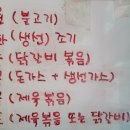 (불고기)
(생선) 조기
(닭갈비 볶음)
(돈가스 + 생선가스)
(제육볶음)
(제육볶음 또는 닭갈비)